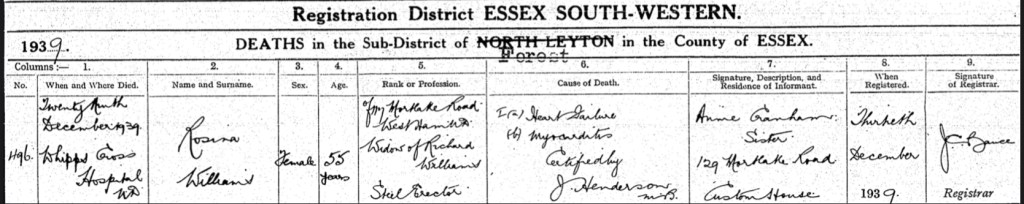 Registration District ESSEX SOUTH-WESTERN.
1939. DEATHS in the Sub-District of NORTH LEYTON in the County of ESSEX.
Forest
Columns:— 1. 2. 3. 4. 5. 6. 7. 8. 9.
No. When and Where Died. Name and Surname. Sex. Age. Rank or Profession. Cause of Death. Signature, Description, and Residence of Informant. When Registered. Signature of Registrar.
496.
Twenty Ninth
December 1939.
Whipps Cross
Hospital
Rosina
Williams
Female
55
years
Mortlake Road
West Ham
Widow of Richard
Williams
Steel Erector.
I(a) Heart Failure
(b) Myocarditis
Certified by
J. Henderson
M.B.
Annie
Sister
129 Mortlake Road
Custom House
Thirtieth
December
1939.
Registrar